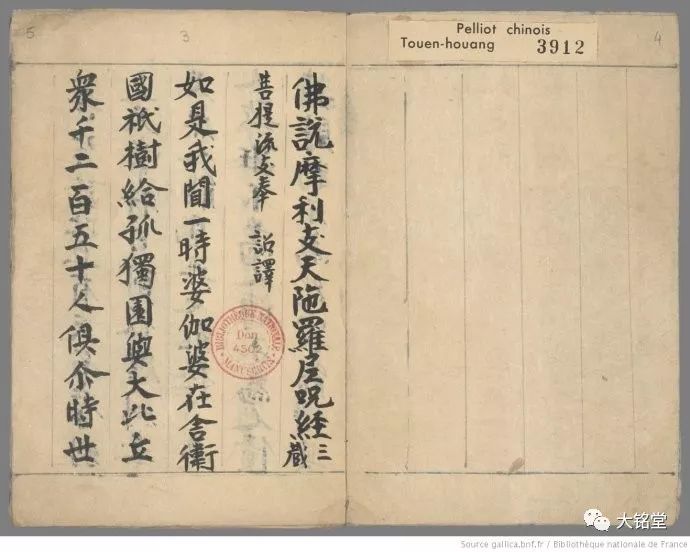 5
3
Pelliot chinois
Touen-houang 3912
4
佛說摩利支天陁羅尼呪經 三藏
菩提流支奉 詔譯
如是我聞一時婆伽婆在舍衛
國祇樹給孤獨園與大比丘
衆千二百五十人俱尒時世
BIBLIOTHÈQUE NATIONALE
Don
4502
MANUSCRITS
大铭堂
Source gallica.bnf.fr / Bibliothèque nationale de France